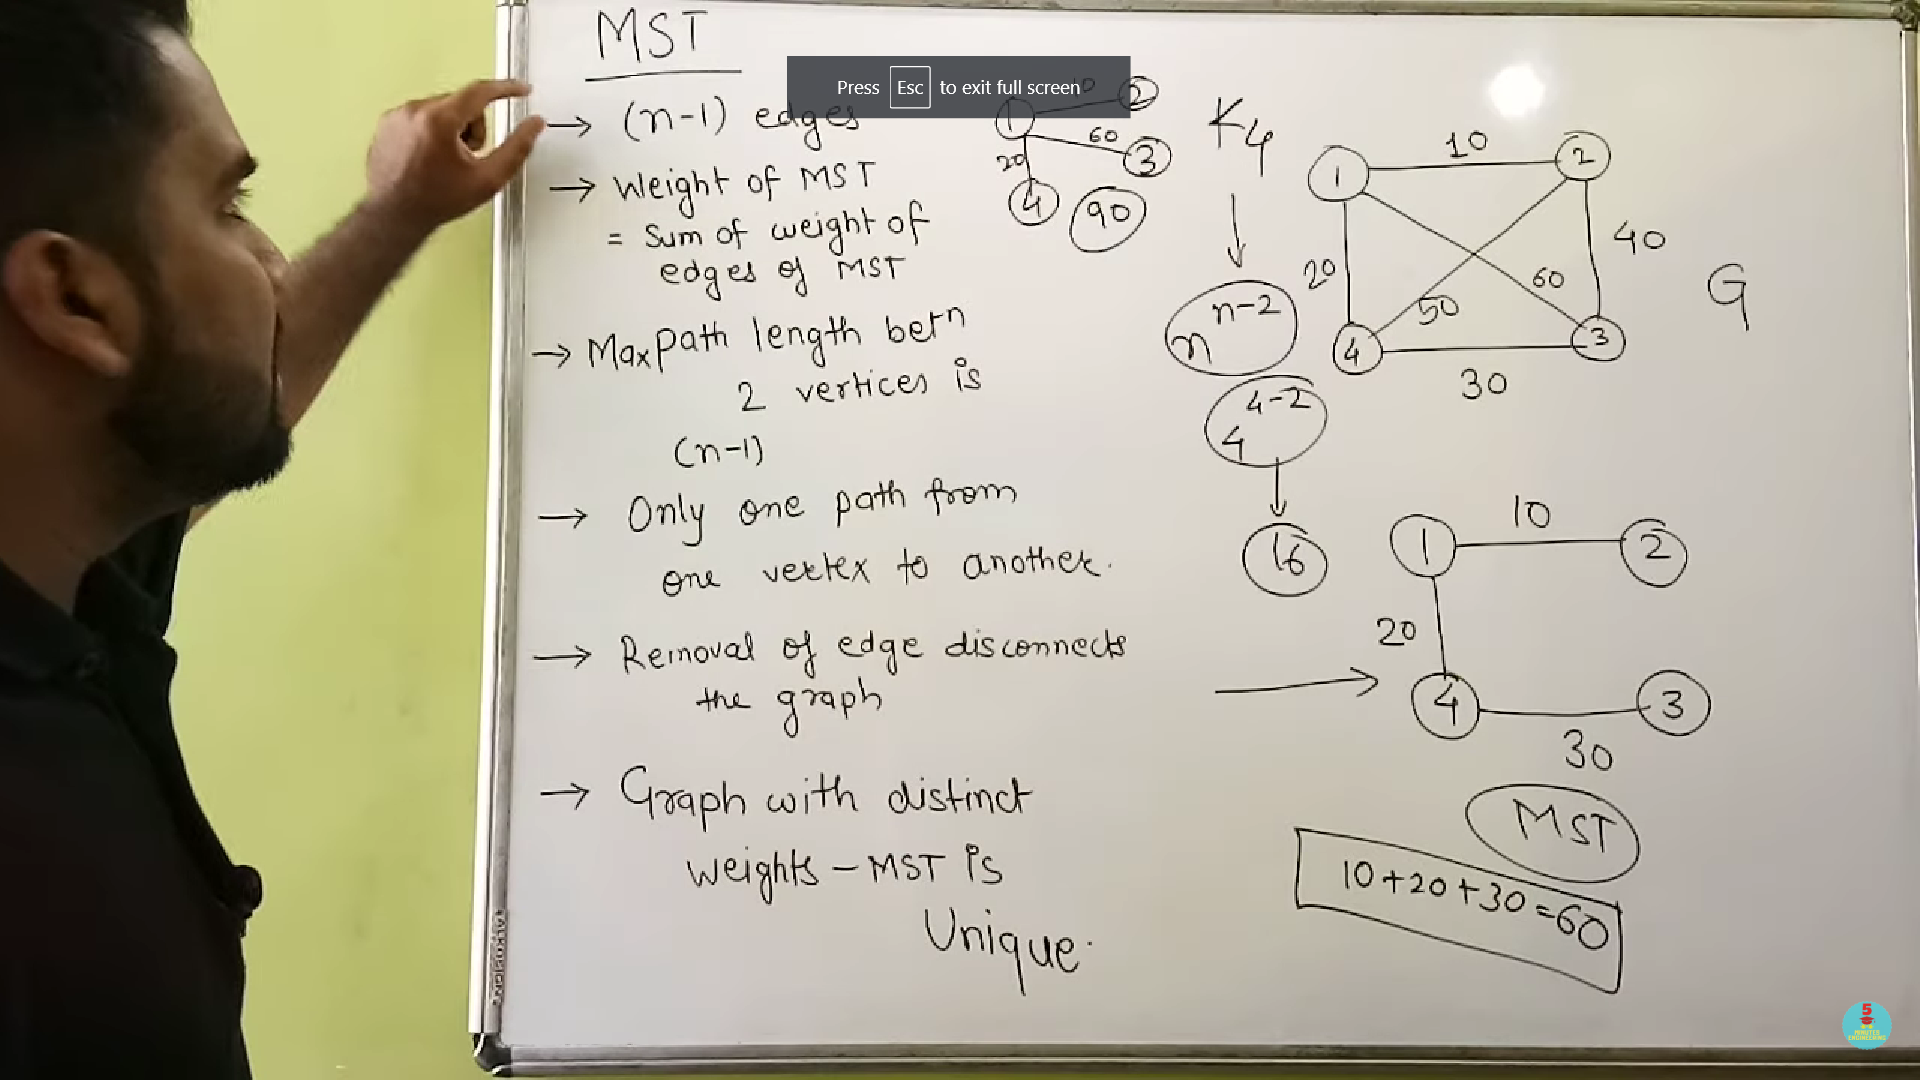 MST
Press Esc to exit full screen
→ (n-1) edges
→ Weight of MST
= Sum of weight of
edges of MST
→ Max Path length betn
2 vertices is
(n-1)
→ Only one path from
one vertex to another.
→ Removal of edge disconnects
the graph
→ Graph with distinct
Weights - MST is
Unique.
1 10 2
60
20 3
4 90
K4
n^n-2
4^4-2
16
1 10 2
20 60 40
50
4 3
30
G
1 10 2
20
4 3
30
MST
10+20+30=60
5
MINUTES
ENGINEERING